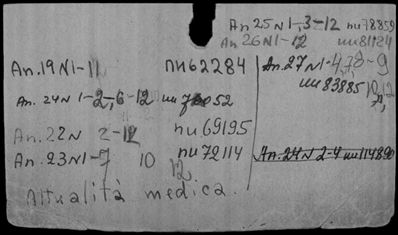 An 25 N 1-,3-12 nu 78859
An 26 N1-12 nu 81124
An.19 N1-11 nu 62284
An. 27 N1-4,78-9
nu 83885 10,12
An. 24 N 1-2,6-12 nu 52
An. 22 N 2-12 nu 69195
An. 23 N1-7 10 12 nu 72114
An. 24 N 2-4 nu 114890
Attualità medica.